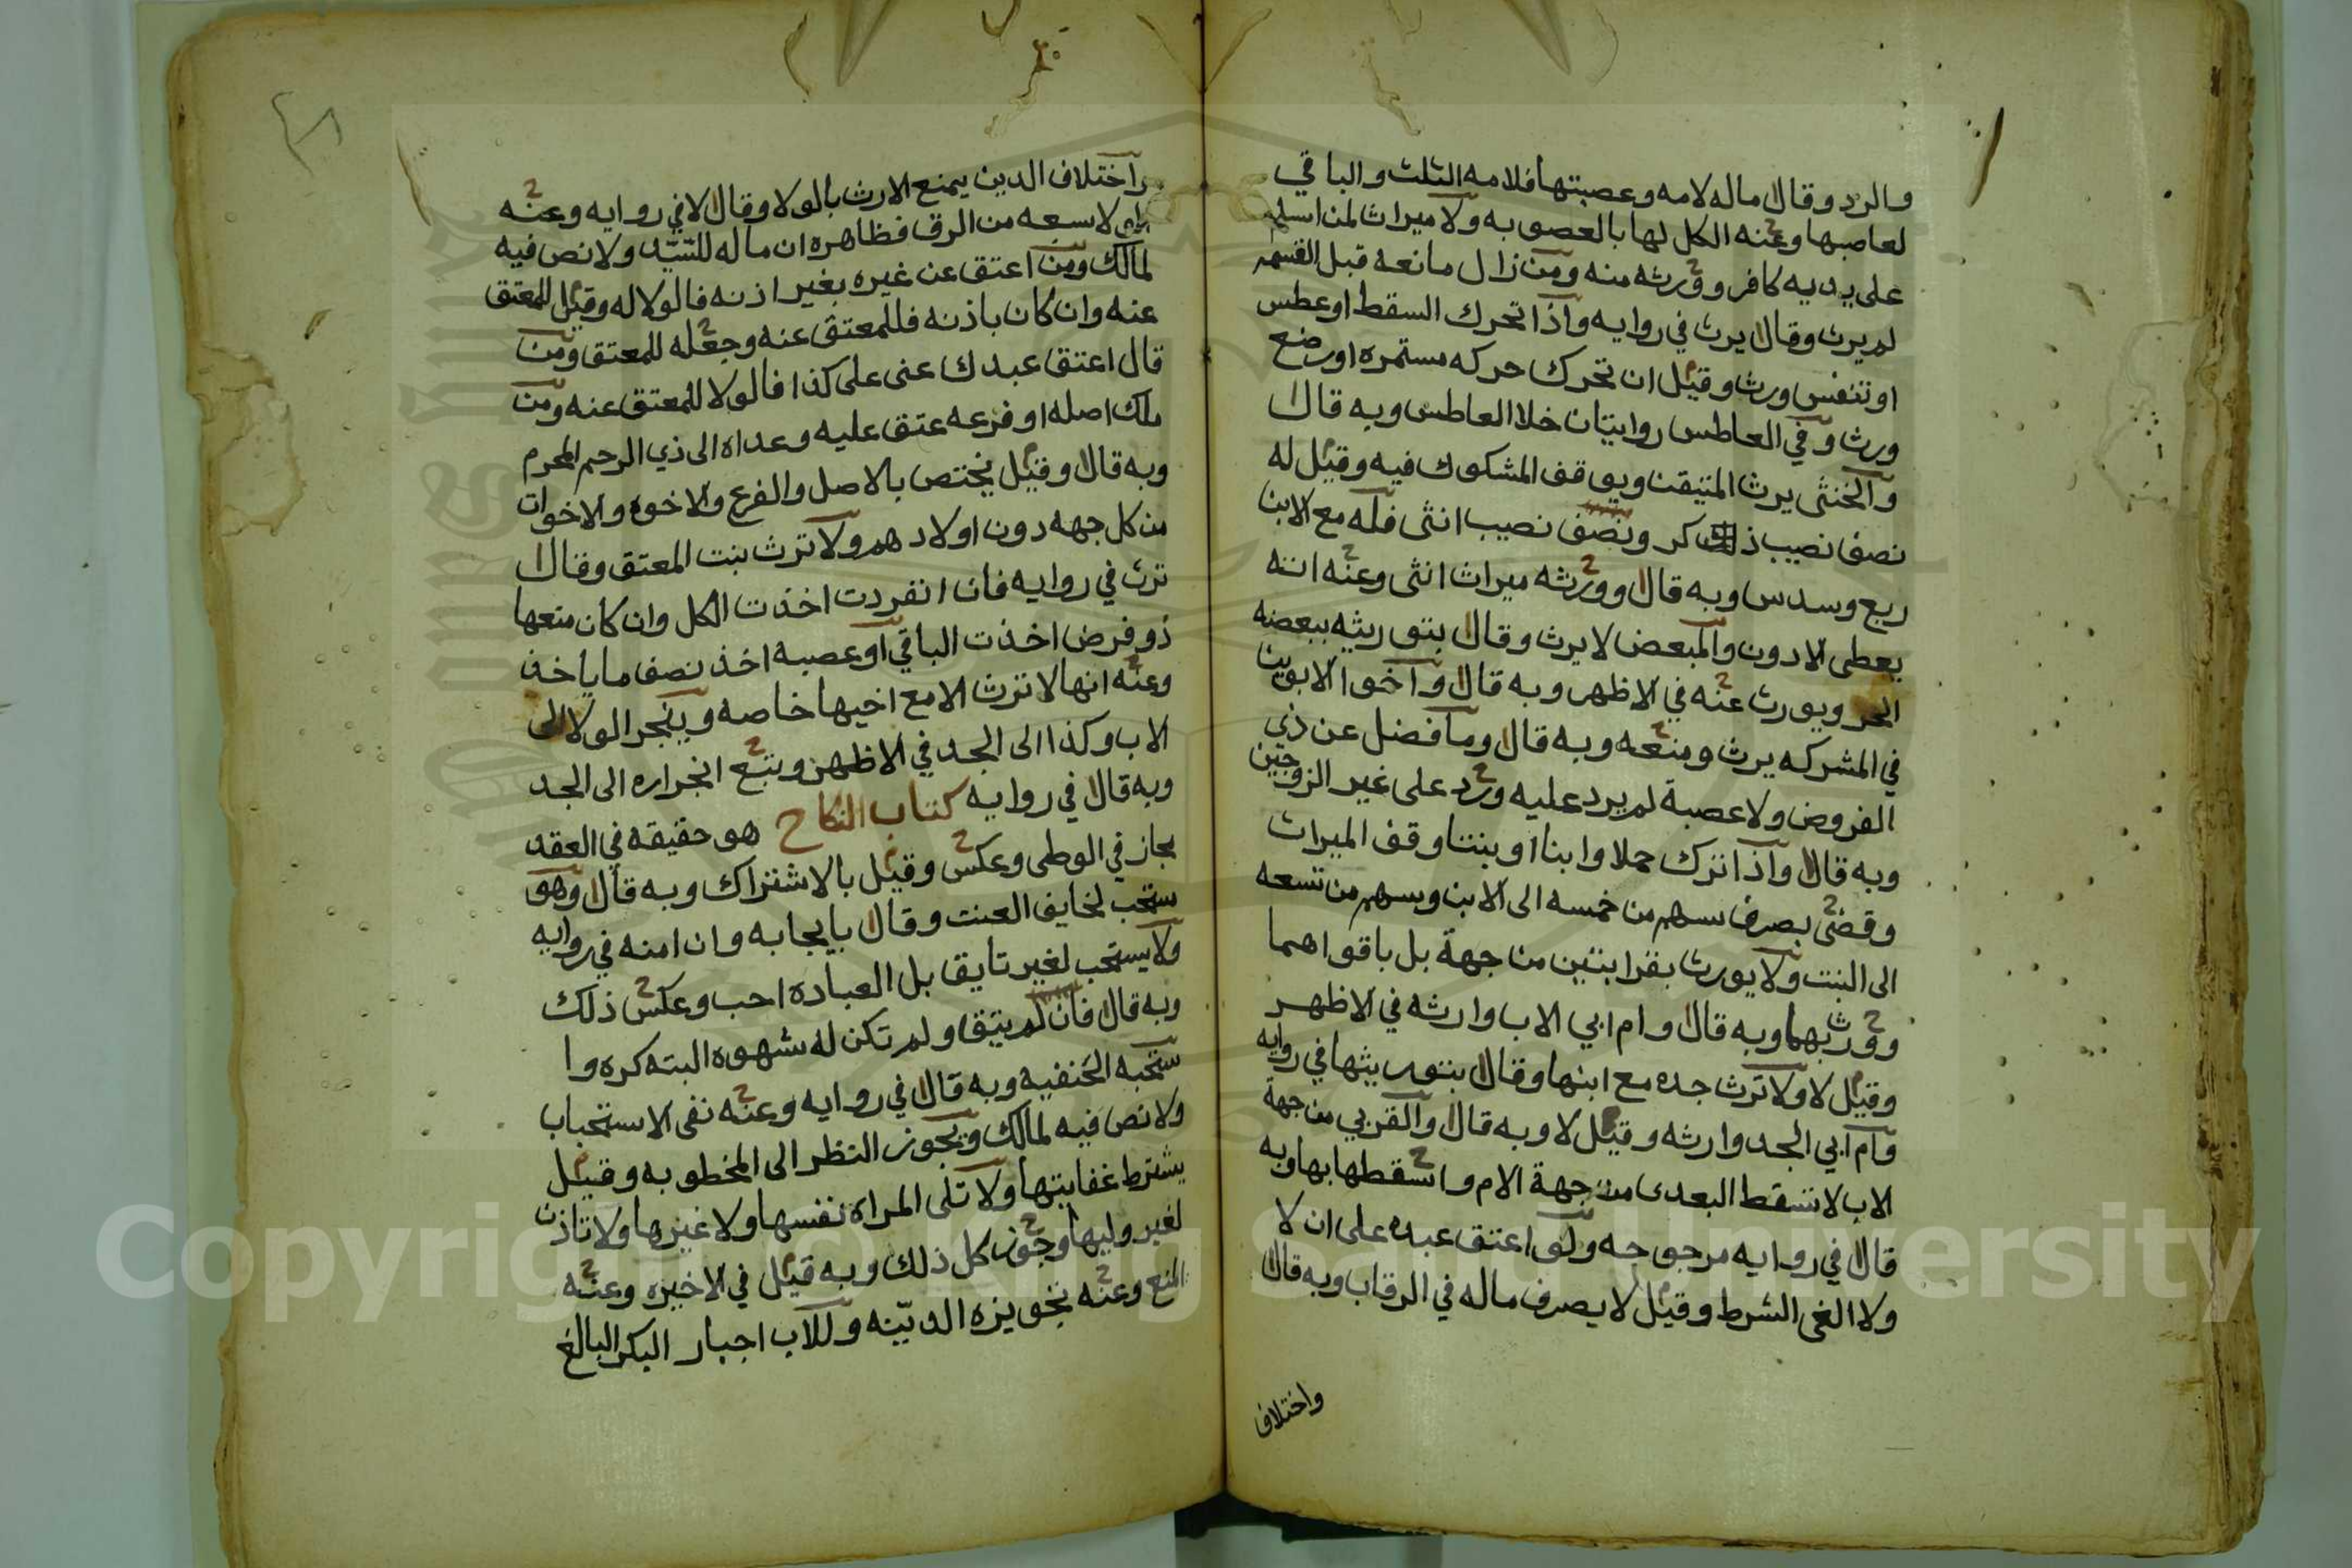 والرد وقال ماله لامه وعصبتها فلامه الثلث والباقي
لعاصبها وعنه الكل لها بالعصوبه ولا ميراث لمن اسلم
على يديه كافر وورثه منه ومن زال مانعه قبل القسمه
لم يرث وقال يرث في روايه واذا تحرك السقط او عطس
او تنفس ورث وقيل ان تحرك حركه مستمره او رضع
ورث وفي العاطس روايتان خلا العاطس وبه قال
والخنثى يرث المتيقن ويوقف المشكوك فيه وقيل له
نصف نصيب ذكر ونصف نصيب انثى فله مع الابن
ربع وسدس وبه قال وورثه ميراث انثى وعنه انه
يعطى الادون والمبعض لا يرث وقال بتوريثه ببعضه
الحر ويورث عنه في الاظهر وبه قال واخوا الابوين
في المشركه يرث ومنعه وبه قال وما فضل عن ذي
الفروض ولا عصبة لم يرد عليه ورد على غير الزوجين
وبه قال واذا ترك حملا وابنا او بنتا وقف الميراث
وقضى بصرف سهم من خمسه الى الابن وسهم من تسعه
الى البنت ولا يورث بقرابتين من جهة بل باقواهما
وورث بهما وبه قال وام ابي الاب وارثه في الاظهر
وقيل لا ولا ترث جده مع ابنها وقال بتوريثها في روايه
وام ابي الجد وارثه وقيل لا وبه قال والقربي من جهة
الاب لا تسقط البعدى من جهة الام واسقطها بها وبه
قال في روايه مرجوحه ولو اعتق عبده على ان لا
ولا الغى الشرط وقيل لا يصرف ماله في الرقاب وبه قال
واختلاف
واختلاف الدين يمنع الارث بالولا وقال لا في روايه وعنه
لا من الرق فظاهره ان ماله للسيد ولا نص فيه
لمالك ومن اعتق عن غيره بغير اذنه فالولا له وقيل للمعتق
عنه وان كان باذنه فللمعتق عنه وجعله للمعتق ومن
قال اعتق عبدك عنى على كذا فالولا للمعتق عنه ومن
ملك اصله او فرعه عتق عليه وعداه الى ذي الرحم المحرم
وبه قال وقيل يختص بالاصل والفرع والاخوه والاخوات
من كل جهه دون اولادهم ولا ترث بنت المعتق وقال
ترث في روايه فان انفردت اخذت الكل وان كان معها
ذو فرض اخذت الباقي او عصبه اخذ نصف ما ياخذ
وعنه انها لا ترث الا مع اخيها خاصه وينجر الولا الى
الاب وكذا الى الجد في الاظهر ومنع انجراره الى الجد
وبه قال في روايه كتاب النكاح هو حقيقه في العقد
مجاز في الوطى وعكس وقيل بالاشتراك وبه قال وهو
مستحب لخايف العنت وقال بايجابه وان امنه في روايه
ولا يستحب لغير تايق بل العباده احب وعكس ذلك
وبه قال فان لم يتق ولم تكن له شهوه البته كره وا
ستحبه الحنفيه وبه قال في روايه وعنه نفى الاستحباب
ولا نص فيه لمالك ويجوز النظر الى المخطوبه وقيل
يشترط ولا تلى المراه نفسها ولا غيرها ولا تاذن
لغير وليها وجوز كل ذلك وبه قيل في الاخيره وعنه
المنع وعنه تجويزه الدنيه وللاب اجبار البكر البالغ
Copyright © King Saud University